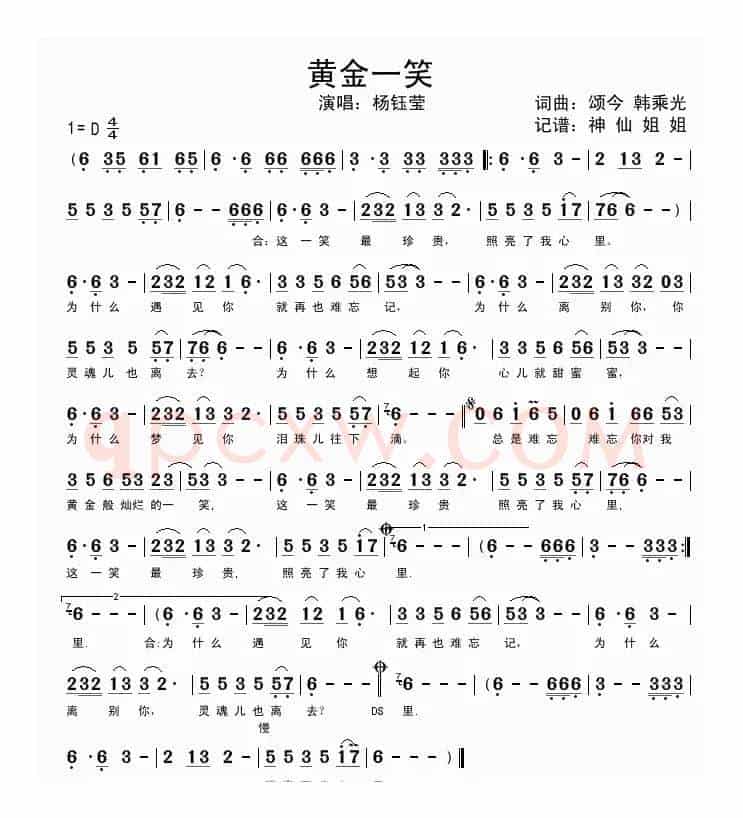 黄金一笑
演唱：杨钰莹
词曲：颂今 韩乘光
1=D 4/4
记谱：神 仙 姐 姐
(6 35 61 65|6·6 66 666|3·3 33 333|:6·6 3 -|2 1 3 2 -|
5 5 3 5 57|6 - - 666|6·6 3 -|232 13 3 2·|5 5 3 5 17|76 6 - -)|
合：这 一 笑 最 珍 贵， 照 亮 了 我 心 里.
6·6 3 -|232 12 1 6·|3 3 5 6 56|53 3 - -|6·6 3 -|232 13 32 03|
为 什 么 遇 见 你 就 再 也 难 忘 记， 为 什 么 离 别 你，你
5 5 3 5 57|76 6 - -|6·6 3 -|232 12 1 6·|3 3 5 6 56|53 3 - -|
灵 魂 儿 也 离 去？ 为 什 么 想 起 你 心 儿 就 甜 蜜 蜜，
6·6 3 -|232 13 3 2·|5 5 3 5 57|7 6 - -|06 1 6 5|06 1 66 53|
为 什 么 梦 见 你 泪 珠 儿 往 下 滴。 总 是 难 忘 难 忘 你 对 我
qpcxw.com
35 6 53 23|5 3 3 - -|6·6 3 -|232 13 3 2·|5 5 3 5 57|6 - - -|
黄 金 般 灿 烂 的 一 笑， 这 一 笑 最 珍 贵 照 亮 了 我 心 里.
1
6·6 3 -|232 13 3 2·|5 5 3 5 17|7 6 - -|(6 - - 666|3 - - 333:|
这 一 笑 最 珍 贵， 照 亮 了 我 心 里.
2
7 6 - -|(6·6 6 -|232 12 1 6·|3 3 5 6 56|53 3 - -|6·6 3 -|
里. 合:为 什 么 遇 见 你 就 再 也 难 忘 记， 为 什 么
232 13 3 2·|5 5 3 5 57|6 - - -‖7 6 - -|(6 - - 666|3 - - 333|
离 别 你， 灵 魂 儿 也 离 去？ DS 里.
慢
6·6 3 -|2 13 2 -|5 5 3 5 17|6 - - -)‖